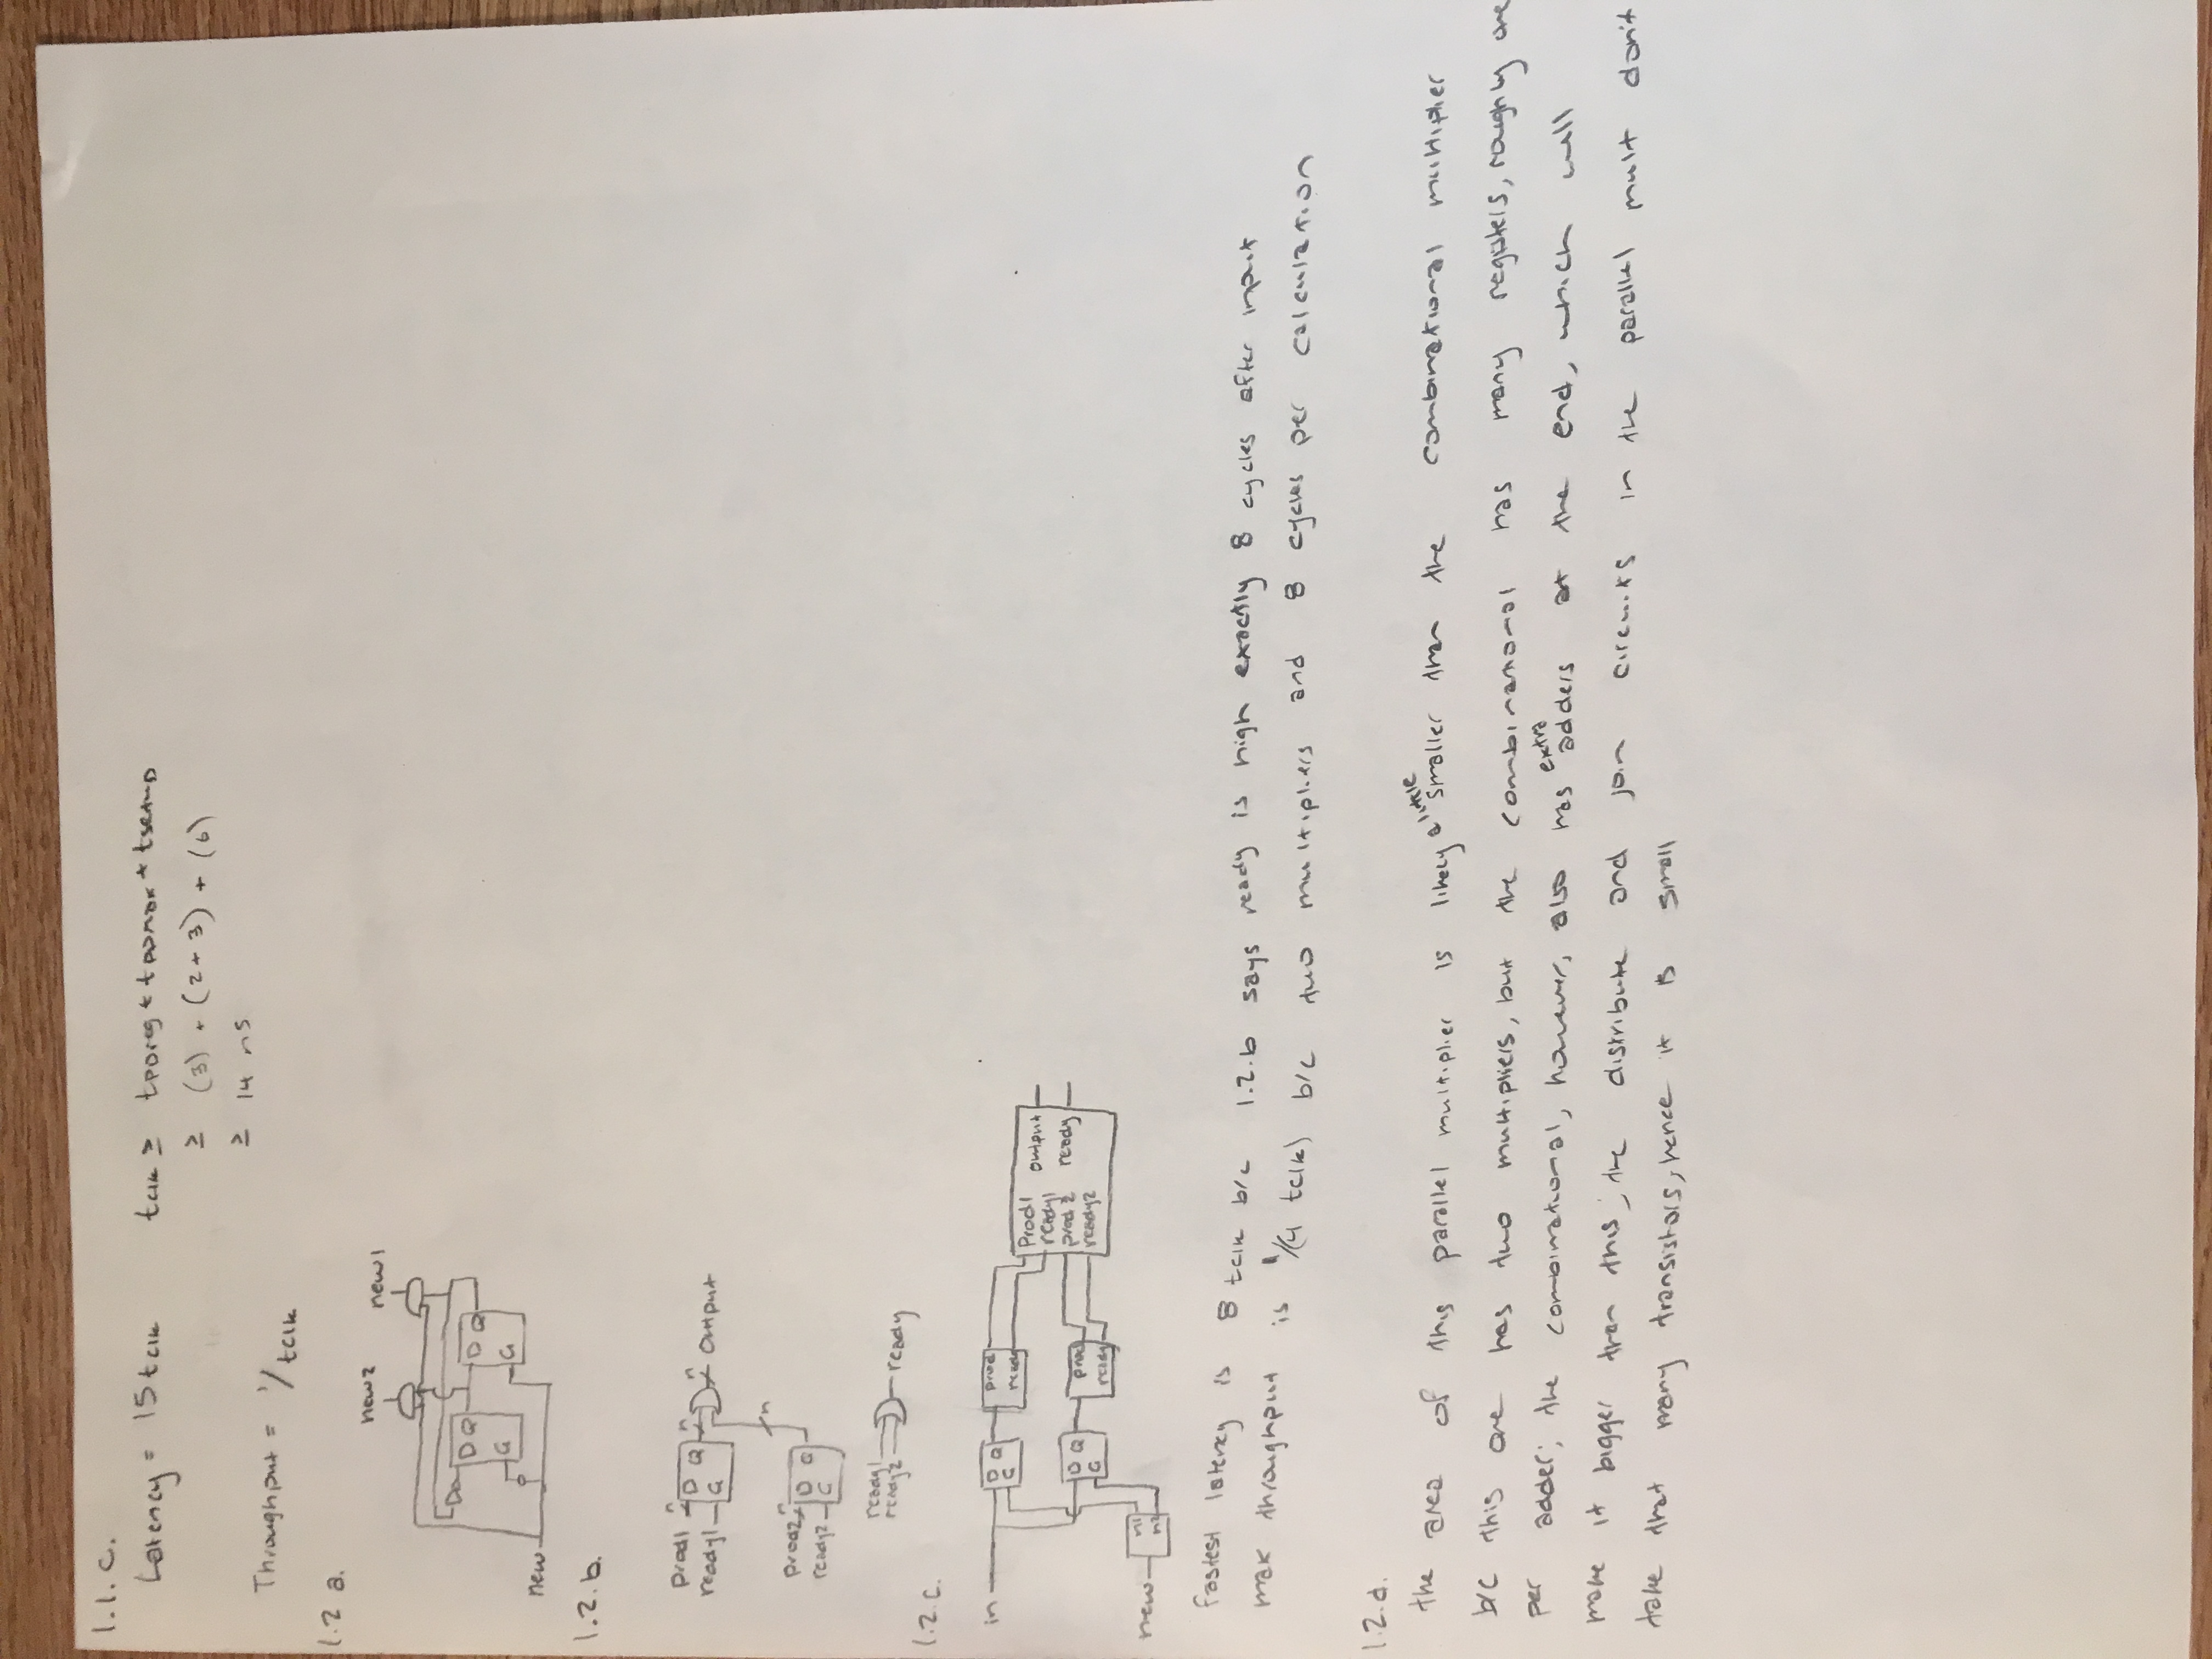 1.1.c.
Latency = 15 tclk    tclk ≥ tPDreg + tPDmax + tsetup
≥ (3) + (2+3) + (6)
≥ 14 ns
Throughput = 1/tclk
1.2 a.
new2 new1
D Q D Q
G G
new
1.2.b.
prod1 n D Q n n output
ready1 G
n
prod2 n D Q
ready2 G
ready1
ready2 ready
1.2.c.
in D Q prod
G ready
prod1 output
ready1
prod2 ready
ready2
D Q prod
G ready
new n1
n2
fastest latency is 8 tclk b/c 1.2.b says ready is high exactly 8 cycles after input
max throughput is 1/(4 tclk) b/c two multipliers and 8 cycles per calculation
1.2.d.
the area of this parallel multiplier is likely a little smaller than the combinational multiplier
b/c this one has two multipliers, but the combinational has many registers, roughly one
per adder; the combinational, however, also has extra adders at the end, which will
make it bigger than this; the distribute and join circuits in the parallel mult don't
take that many transistors, hence it is small